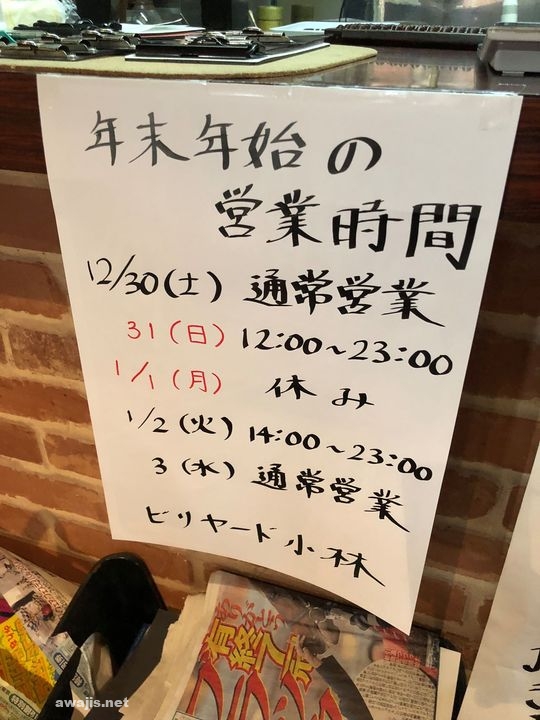 年末年始の
営業時間
12/30(土) 通常営業
31(日) 12:00~23:00
1/1(月) 休み
1/2(火) 14:00~23:00
3(水) 通常営業
ビリヤード小林
ありがとう
有終了市
awajis.net